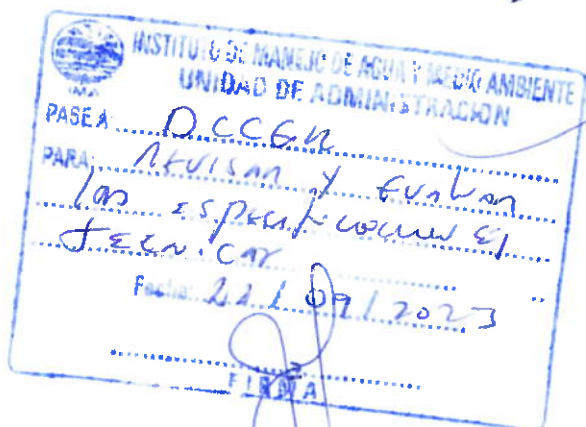 INSTITUTO DE MANEJO DE AGUA Y MEDIO AMBIENTE
UNIDAD DE ADMINISTRACION
IMA
PASE A: DCCGR
PARA: Revisar y Evaluar
las especificaciones
Tecnicas
Fecha: 22 / 09 / 2023
FIRMA